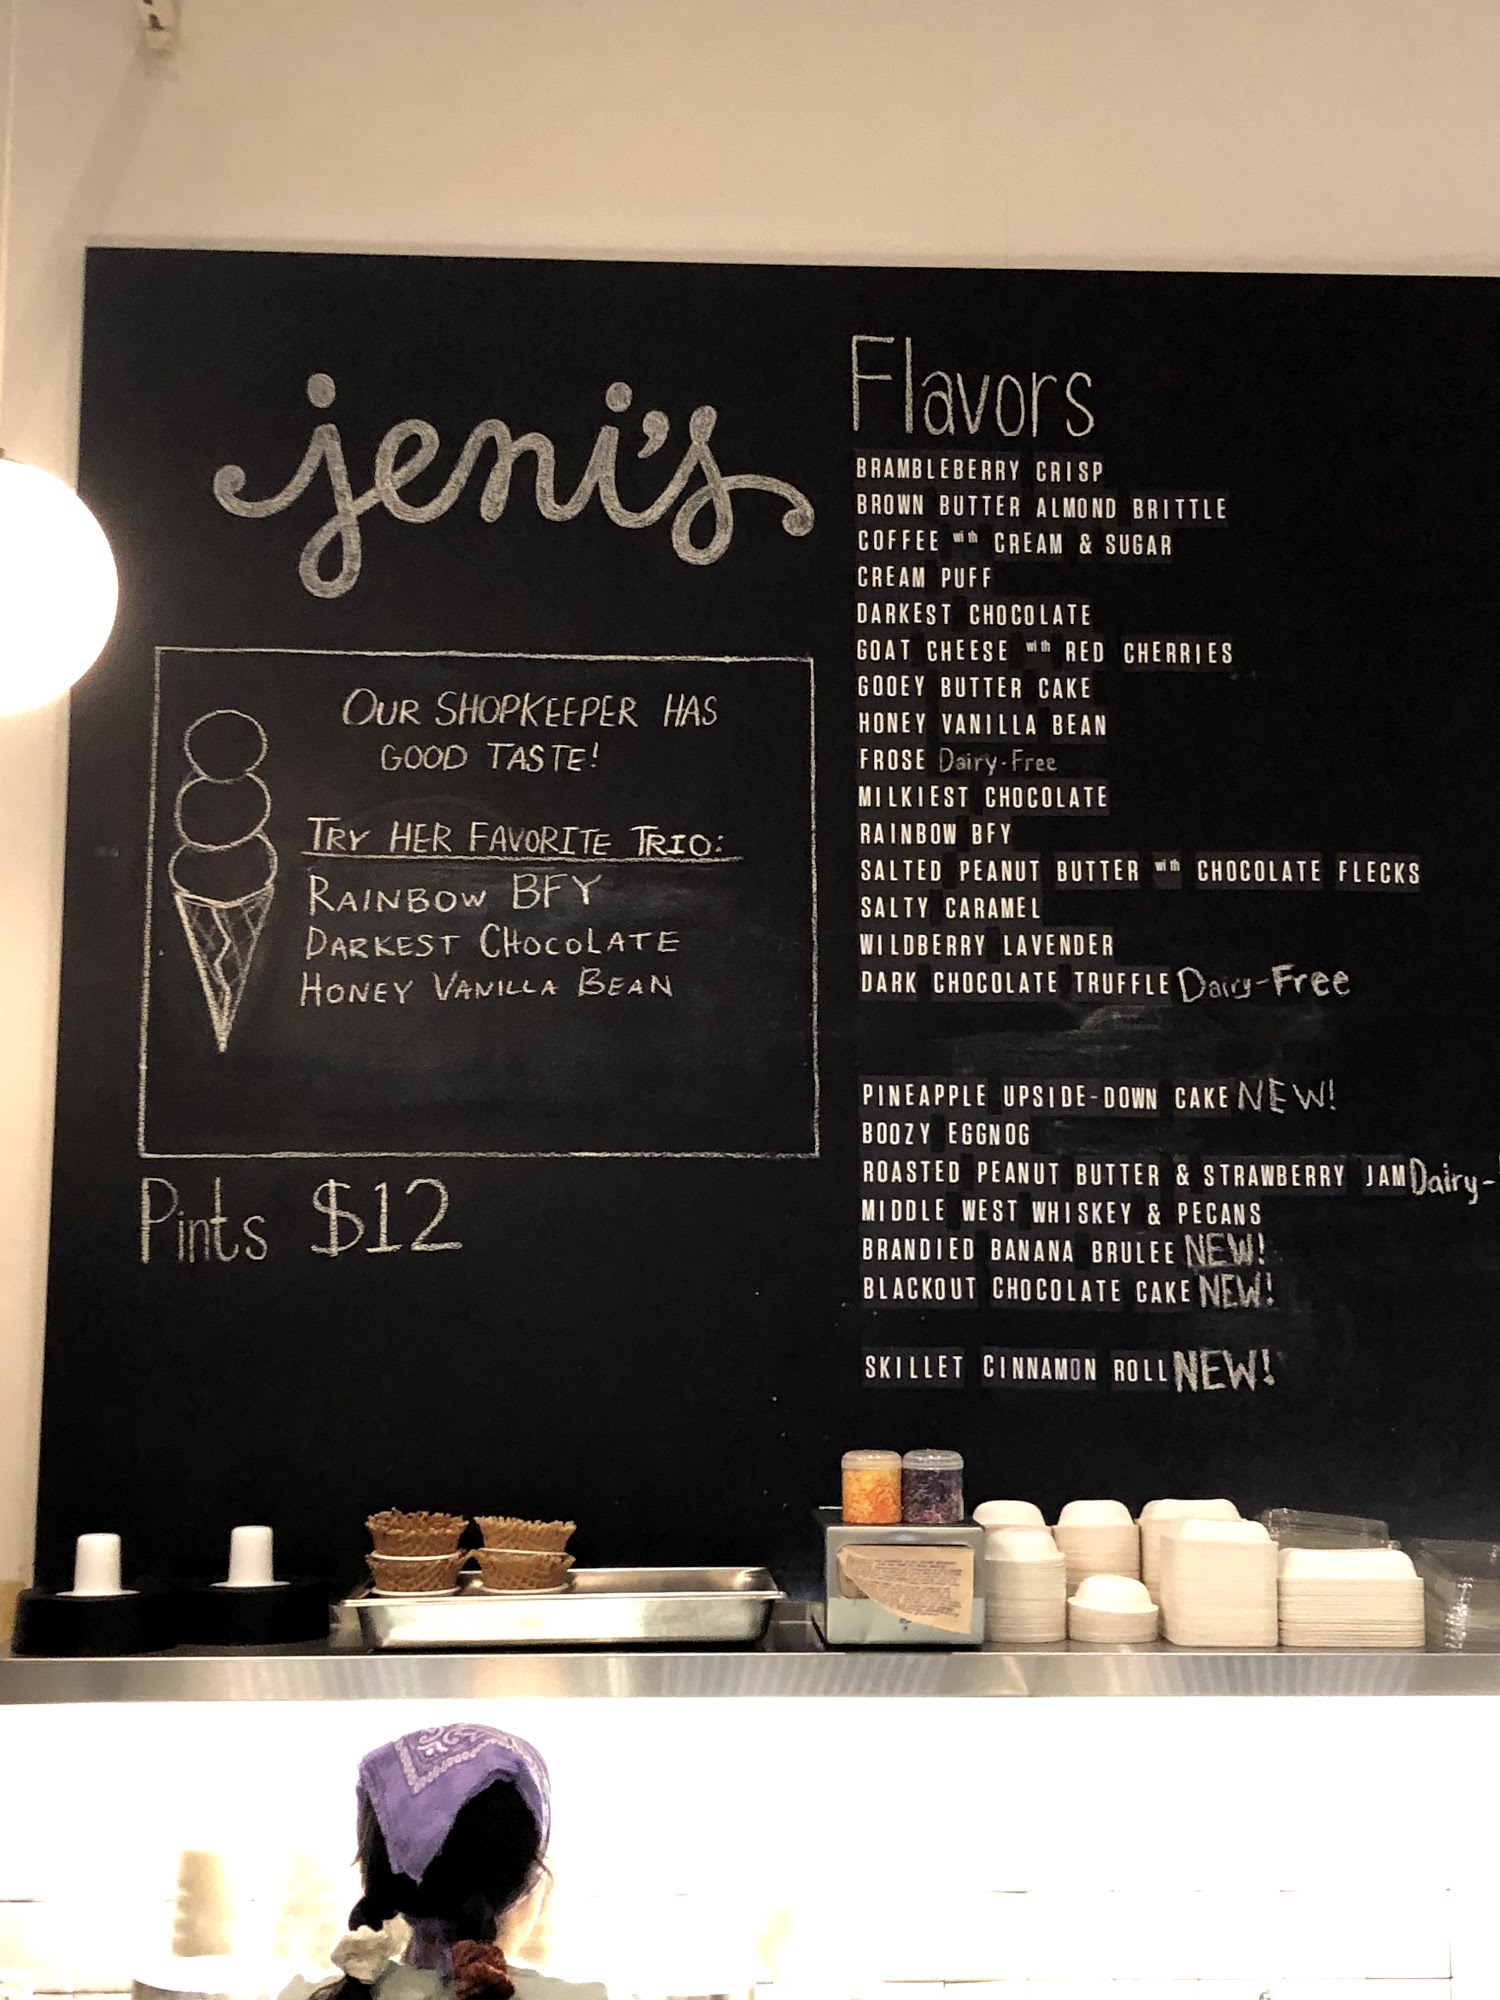 jeni's
OUR SHOPKEEPER HAS
GOOD TASTE!
TRY HER FAVORITE TRIO:
RAINBOW BFY
DARKEST CHOCOLATE
HONEY VANILLA BEAN
Pints $12
Flavors
BRAMBLEBERRY CRISP
BROWN BUTTER ALMOND BRITTLE
COFFEE with CREAM & SUGAR
CREAM PUFF
DARKEST CHOCOLATE
GOAT CHEESE with RED CHERRIES
GOOEY BUTTER CAKE
HONEY VANILLA BEAN
FROSE Dairy-Free
MILKIEST CHOCOLATE
RAINBOW BFY
SALTED PEANUT BUTTER with CHOCOLATE FLECKS
SALTY CARAMEL
WILDBERRY LAVENDER
DARK CHOCOLATE TRUFFLE Dairy-Free
PINEAPPLE UPSIDE-DOWN CAKE NEW!
BOOZY EGGNOG
ROASTED PEANUT BUTTER & STRAWBERRY JAM Dairy-
MIDDLE WEST WHISKEY & PECANS
BRANDIED BANANA BRULEE NEW!
BLACKOUT CHOCOLATE CAKE NEW!
SKILLET CINNAMON ROLL NEW!